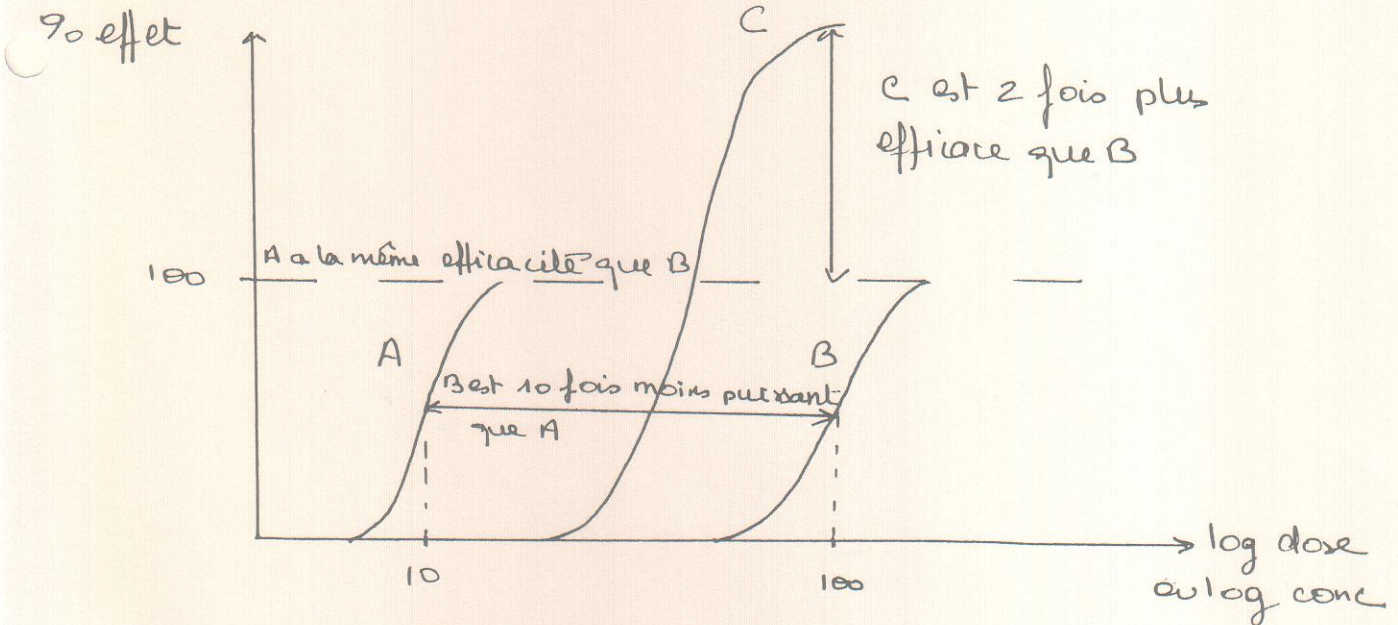 % effet
C
C est 2 fois plus
efficace que B
A a la même efficacité que B
100
A
B
B est 10 fois moins puissant
que A
10
100
log dose
ou log conc